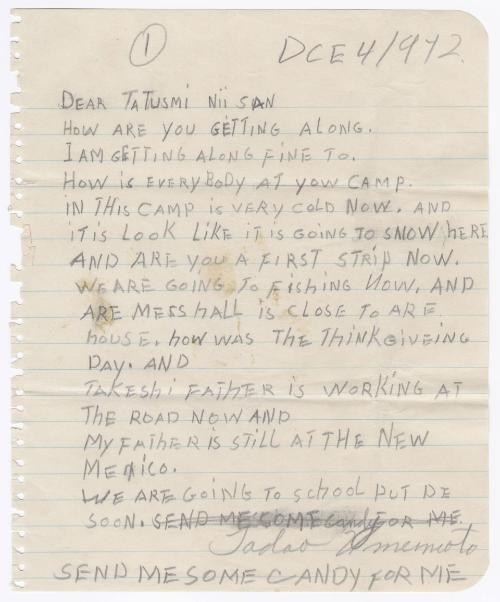 1
DCE 4/1942.
DEAR TATUSMI NII SAN
HOW ARE YOU GETTING ALONG.
I AM GETTING ALONG FINE TO.
HOW IS EVERYBODY AT YOW CAMP.
IN THIS CAMP IS VERY COLD NOW. AND
IT IS LOOK LIKE IT IS GOING TO SNOW HERE
AND ARE YOU A FIRST STRIP NOW.
WE ARE GOING TO FISHING NOW. AND
ARE MESS HALL IS CLOSE TO ARE
HOUSE. HOW WAS THE THINKGIVEING
DAY. AND
TAKESHI FATHER IS WORKING AT
THE ROAD NOW AND
MY FATHER IS STILL AT THE NEW
MEXICO.
WE ARE GOING TO SCHOOL PUT DE
SOON. SEND ME SOME Candy FOR ME
Tadao Omemoto
SEND ME SOME CANDY FOR ME